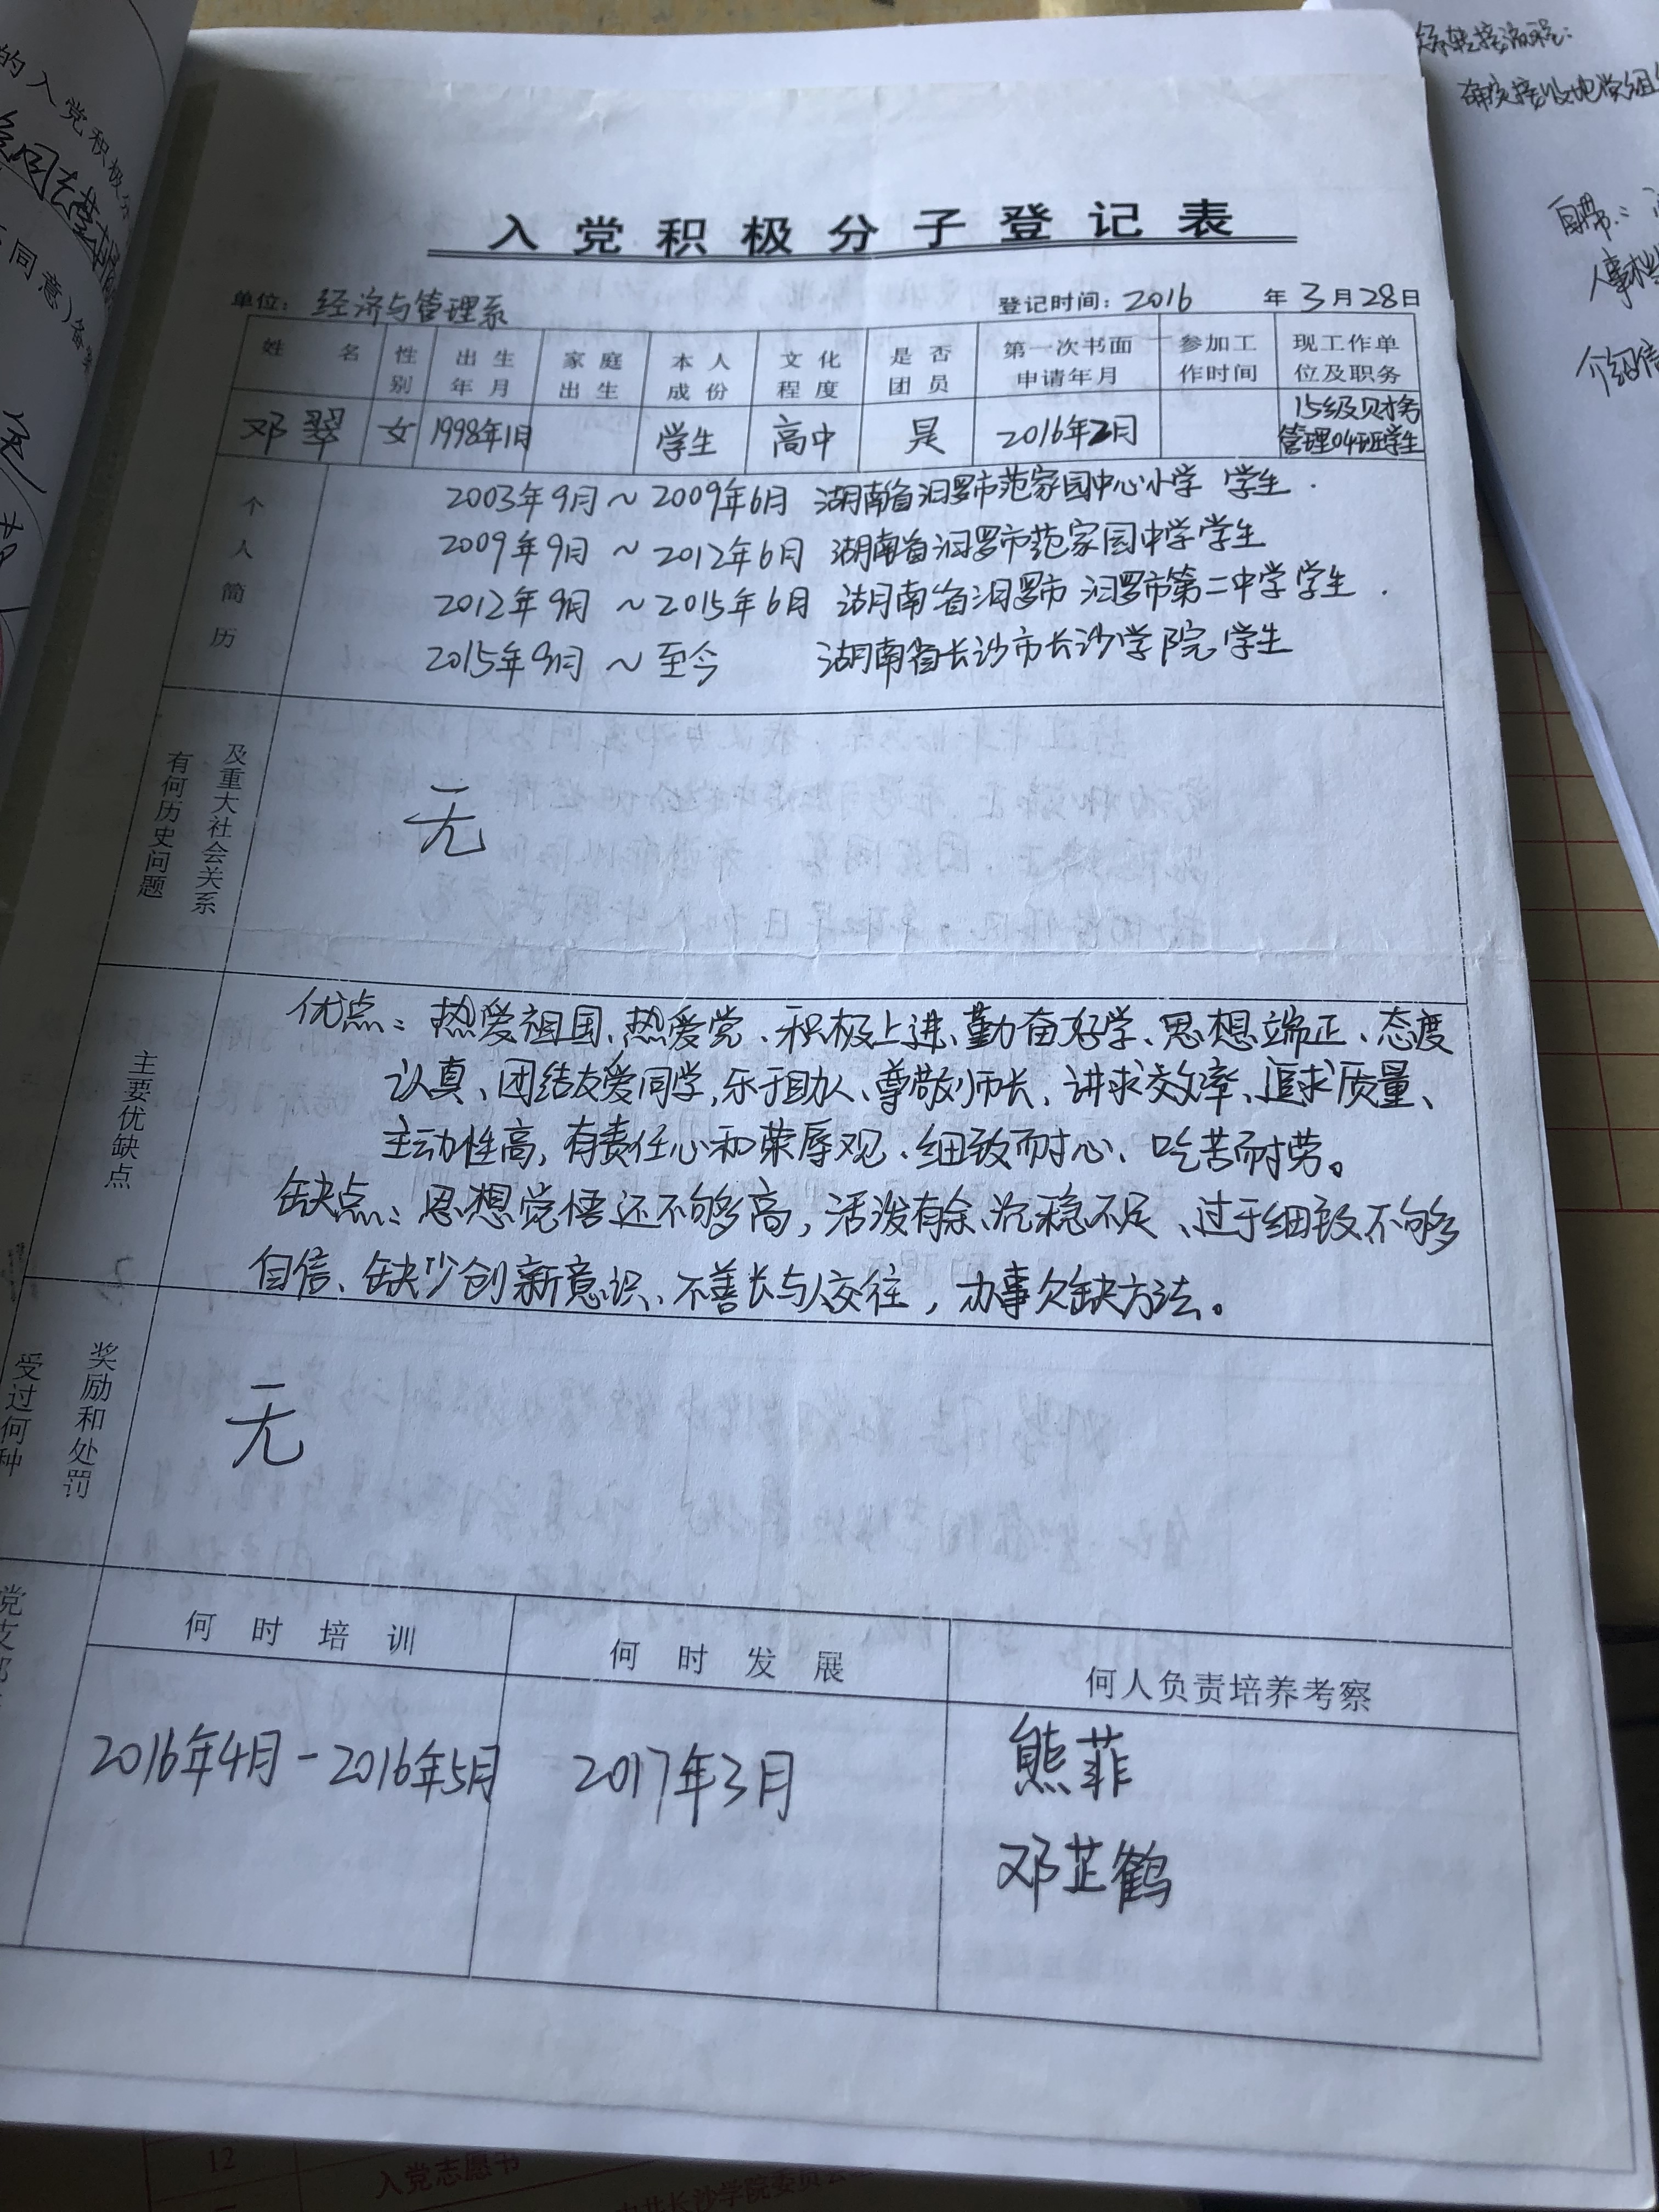 入党积极分子登记表
单位：经济与管理系 登记时间：2016 年 3月28日
姓名 性别 出生年月 家庭出生 本人成份 文化程度 是否团员 第一次书面申请年月 参加工作时间 现工作单位及职务
邓翠 女 1998年1月 学生 高中 是 2016年2月 15级财务管理04班学生
个人简历
2003年9月～2009年6月 湖南省汨罗市范家园中心小学 学生.
2009年9月～2012年6月 湖南省汨罗市范家园中学学生
2012年9月～2015年6月 湖南省汨罗市 汨罗市第二中学学生.
2015年9月～至今 湖南省长沙市长沙学院学生
有何历史问题及重大社会关系
无
主要优缺点
优点：热爱祖国、热爱党、积极上进、勤奋好学、思想端正、态度
认真、团结友爱同学,乐于助人、尊敬师长、讲求效率、追求质量、
主动性高,有责任心和荣辱观、细致而耐心、吃苦而耐劳。
缺点：思想觉悟还不够高,活泼有余、沉稳不足、过于细致不够
自信、缺少创新意识、不善长与人交往,办事欠缺方法。
受过何种奖励和处罚
无
何时培训 何时发展 何人负责培养考察
2016年4月-2016年5月 2017年3月 熊菲
邓芷鹤
的入党积极分
同意）备案
确定接收地党组
自带：
人事档
介绍信
12 入党志愿书
中共长沙学院委员会